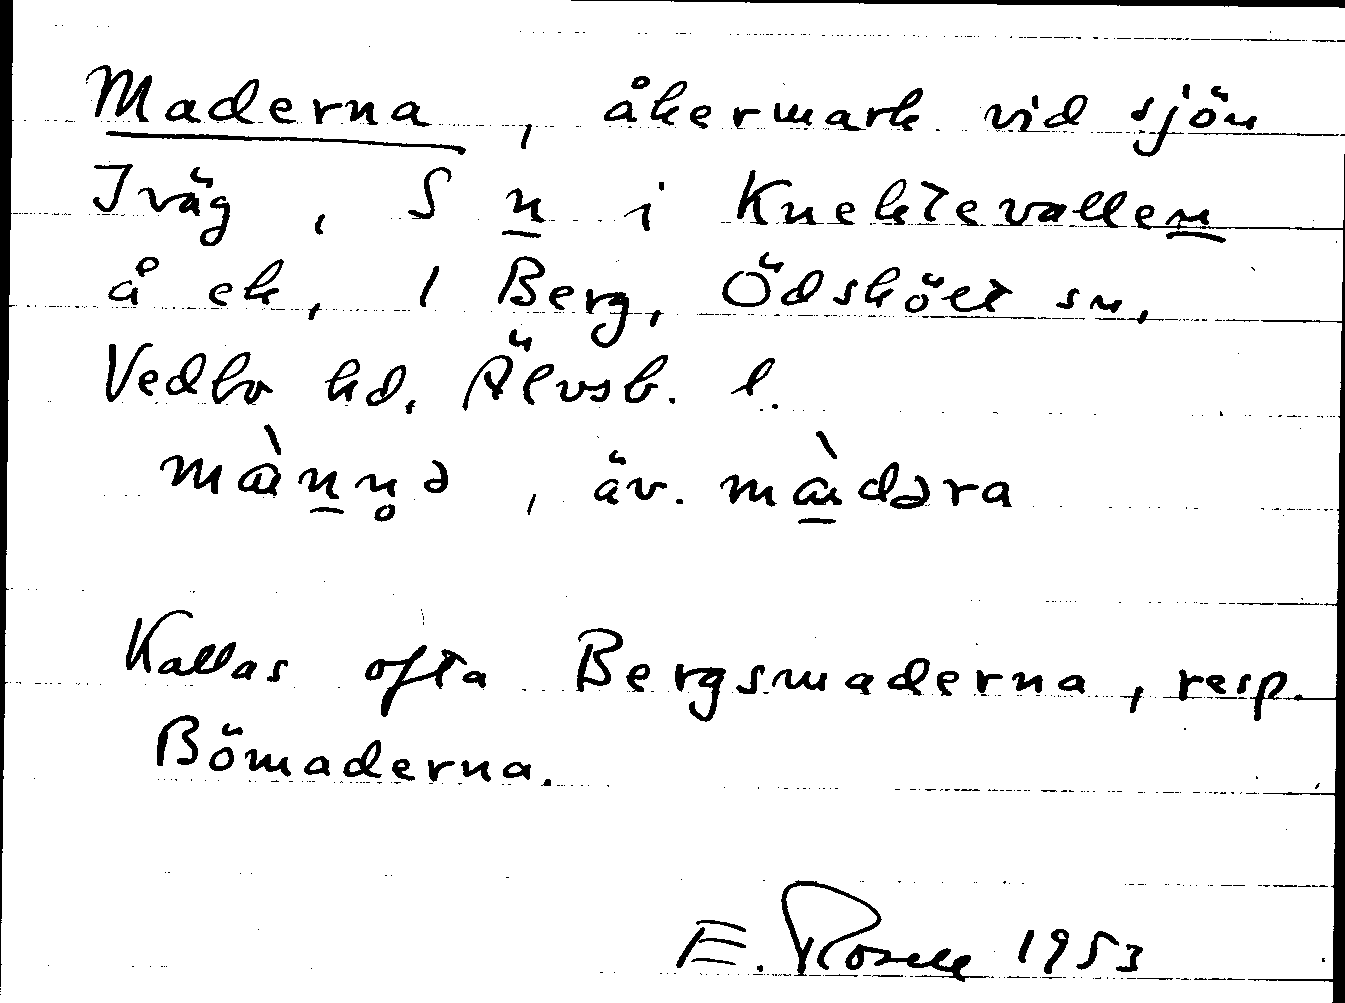 Maderna, åkermark vid sjön
Iväg, S n i Knektevallen
å ek, 1 Berg, Ödskölt sn,
Vedbo hd. Älvsb. l.
äv.
Kallas ofta Bergsmaderna, resp.
Bömaderna.
E. Rosell 1953